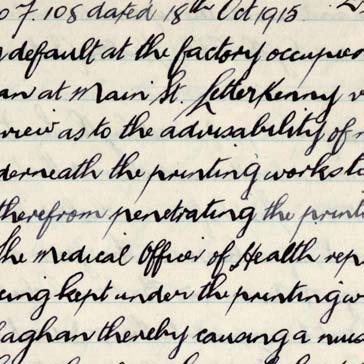 o 7.108 dated 18th Oct 1915.
default at the factory occupie
an at Main St. Letterkenny
view as to the advisability of
derneath the printing works
therefrom penetrating the print
he Medical Officer of Health rep
eing kept under the printing w
aghan thereby causing a nui